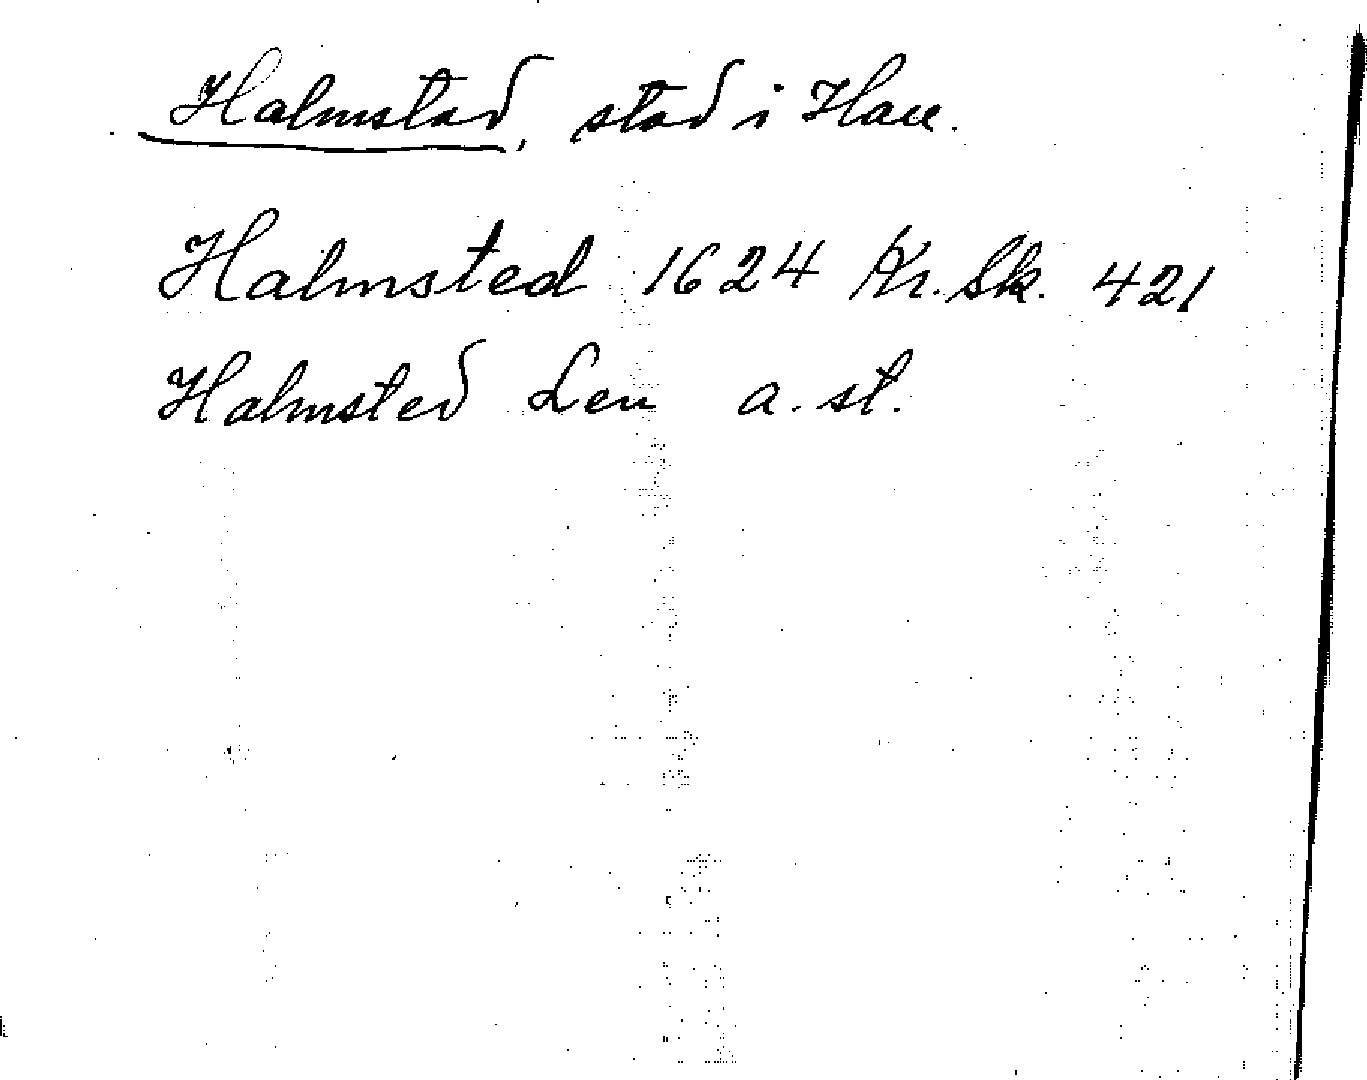 Halmstad, stad i Hall.
Halmsted 1624 Kr. Sk. 421
Halmsted Len a. st.